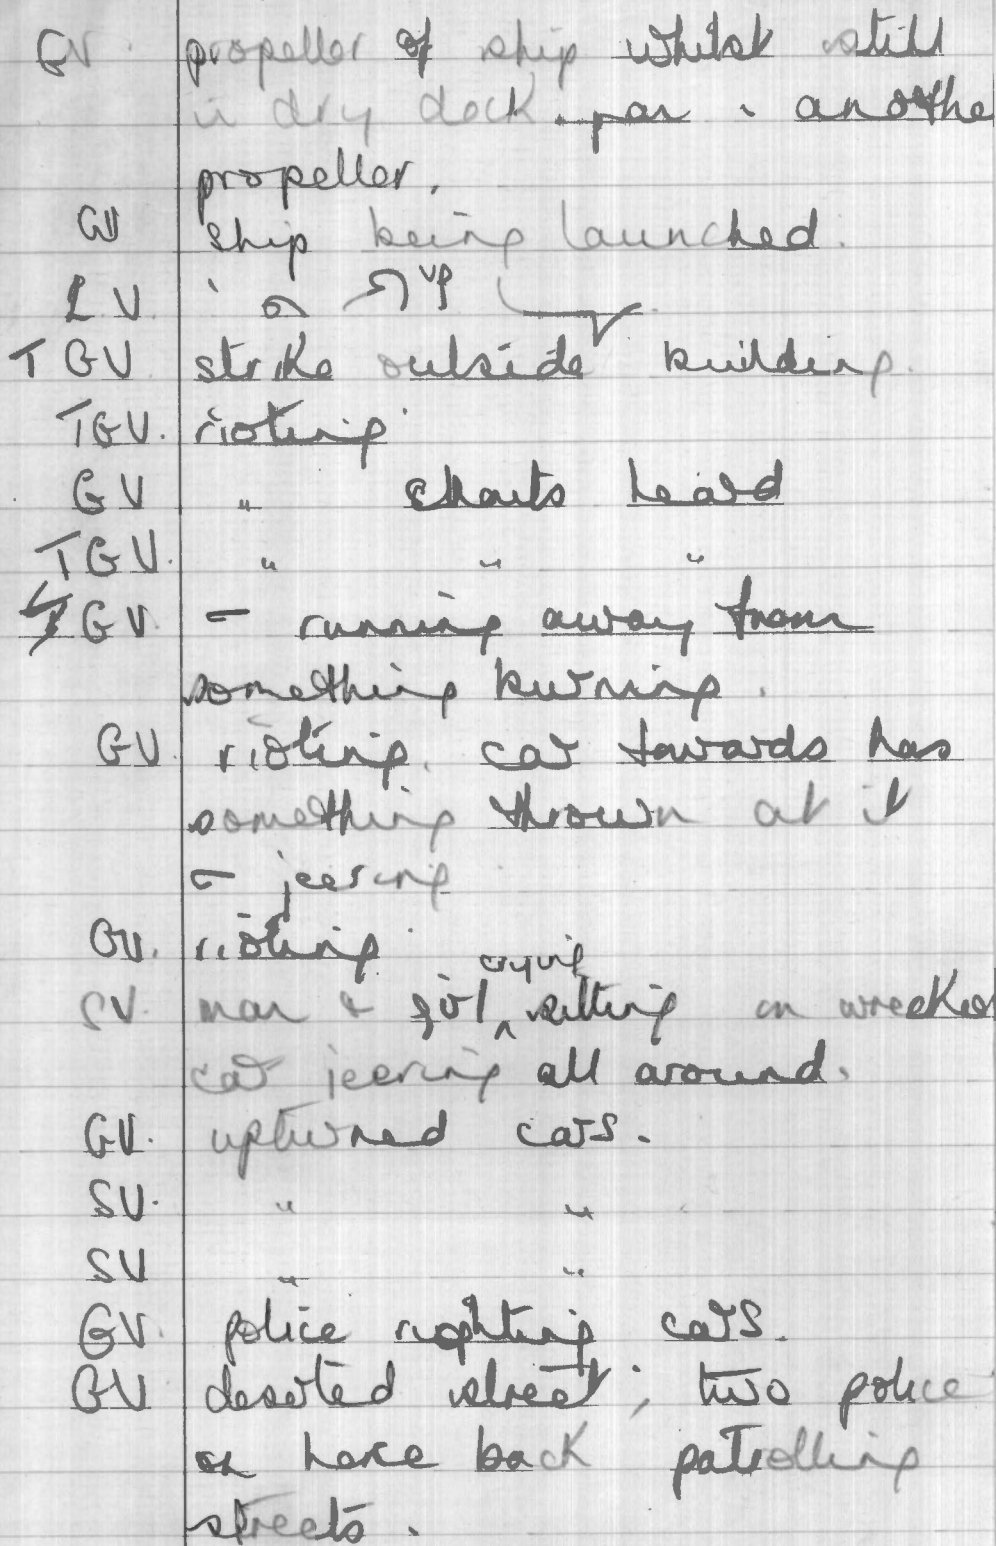 GV propeller of ship whilst still
in dry dock. pan . another
propeller.
GV ship being launched.
LV up
TGV strike outside building.
TGV. rioting
GV " shouts heard
TGV. " " "
GV - running away from
something burning.
GV. rioting. car towards has
something thrown at it
- jeering
GV. rioting
crying
SV. man & girl ^ sitting on wrecked
car jeering all around.
GV. upturned cars.
SV. " "
SV " "
GV. police righting cars.
GV deserted street; two police
on horse back patrolling
streets.